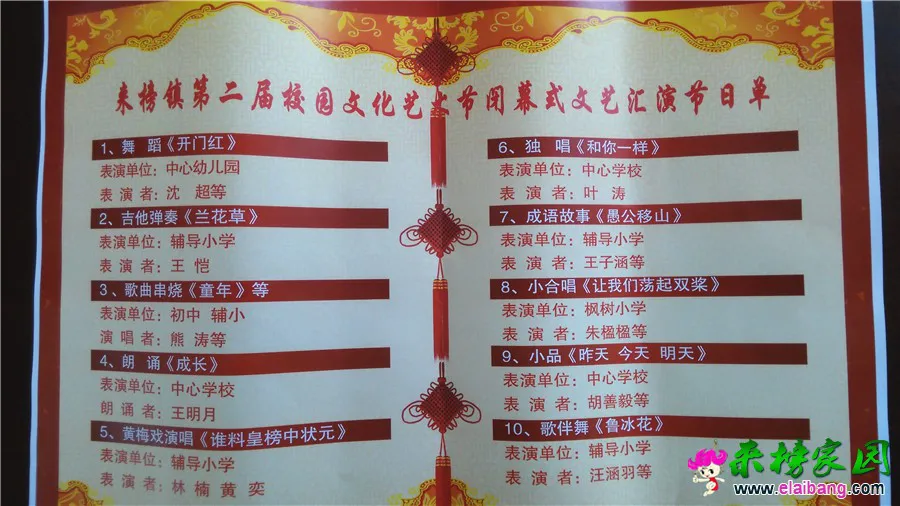 来榜镇第二届校园文化艺术节闭幕式文艺汇演节目单
1、舞 蹈《开门红》
表演单位：中心幼儿园
表 演 者：沈 超等
2、吉他弹奏《兰花草》
表演单位：辅导小学
表 演 者：王 恺
3、歌曲串烧《童年》等
表演单位：初中 辅小
演 唱 者：熊 涛等
4、朗 诵《成长》
表演单位：中心学校
朗 诵 者：王明月
5、黄梅戏演唱《谁料皇榜中状元》
表演单位：辅导小学
表 演 者：林 楠 黄 奕
6、独 唱《和你一样》
表演单位：中心学校
表 演 者：叶 涛
7、成语故事《愚公移山》
表演单位：辅导小学
表 演 者：王子涵等
8、小合唱《让我们荡起双桨》
表演单位：枫树小学
表 演 者：朱楹楹等
9、小品《昨天 今天 明天》
表演单位：中心学校
表 演 者：胡善毅等
10、歌伴舞《鲁冰花》
表演单位：辅导小学
表 演 者：汪涵羽等
来榜家园
www.elaibang.com